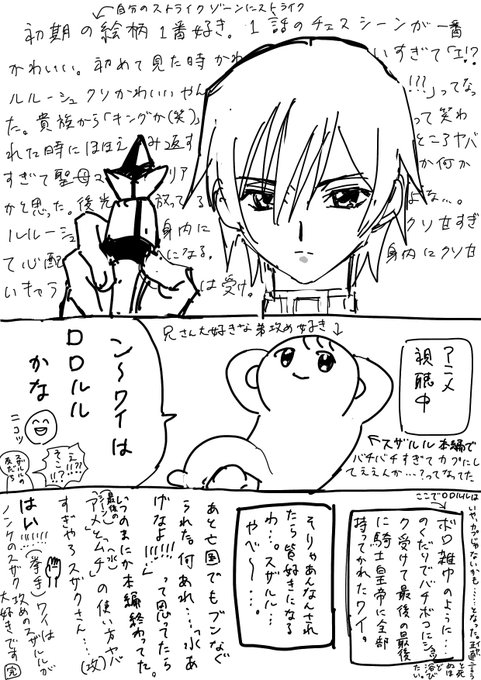 自分のストライクゾーンにストライク
初期の絵柄1番好き。1話のチェスシーンが一番
かわいい。初めて見た時かわ いすぎて「エ!?
ルルーシュクソかわいいやん !!!」ってなっ
た。貴族から「キングか(笑)」 って笑わ
れた時にほほえみ返す ところヤバ
すぎて聖母マリア か何か
かと思った。後光放ってる よな…。
ルルーシュ 身内に クソ甘すぎ
て心配になる。 身内にクソ甘
いキャラ は受け。
兄さん大好きな弟攻め好き
アニメ
視聴中
ン〜ワイは
ロロルル
かな
ニコッ
え
そこ!!?!?
スザルル本編で
バチバチすぎてカプにし
てええんか…?ってなってた
ここでロロルルは
いやカプじゃないかも…となった。
ボロ雑巾のように…
のくだりでバチボコにショッ
ク受けて最後の最後
に騎士皇帝に全部
持ってかれたワイ。
そりゃあんなんされ
たら皆好きになる
わ…。スザルル…
やべ〜…
あと亡国でもブンなぐ
られた。何あれ…(水あ
げなよ!!!!」って思ってたら
いつのまにか本編終わってた。
(最後の水)
「アメとムチ」の使い方ヤバ
すぎやろスザクさん…(攻)
はい!!!!(挙手)ワイは
ノンケのスザク攻めのスザルルが
大好きです 完